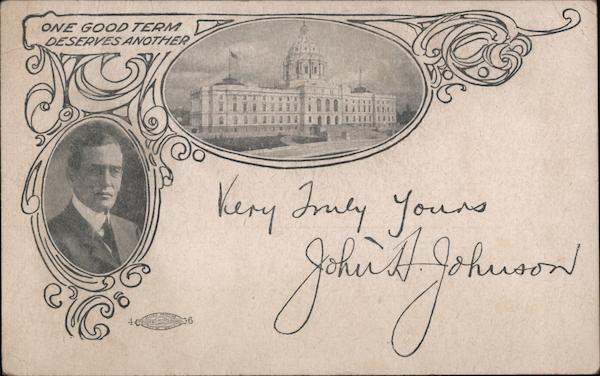 ONE GOOD TERM
DESERVES ANOTHER
Very Truly Yours
John A. Johnson
4 6